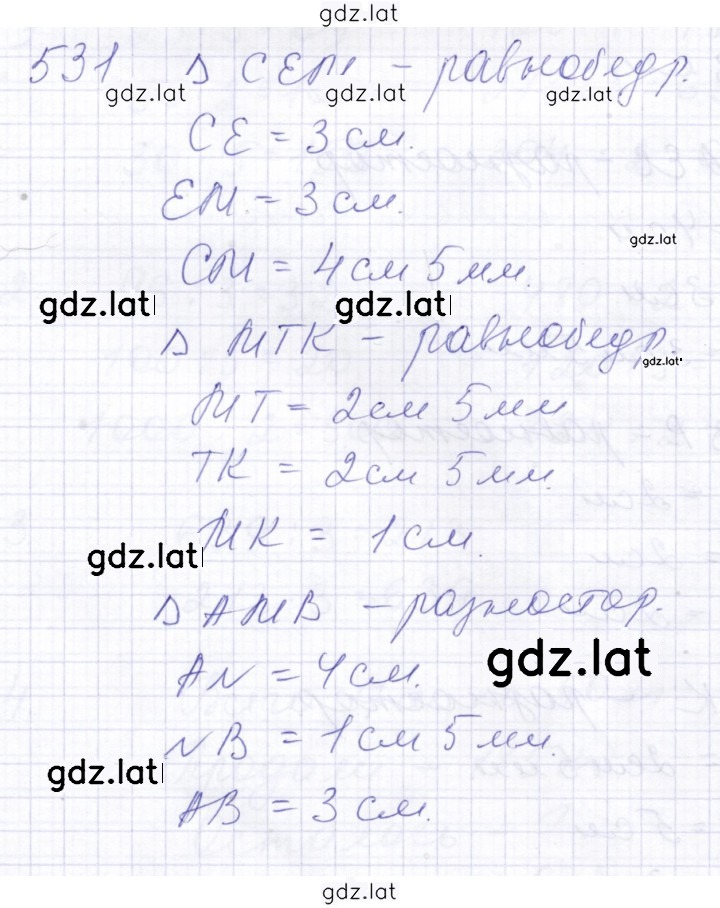 gdz.lat
531 Δ CEM - равнобедр.
gdz.lat gdz.lat gdz.lat
CE = 3 см.
EM = 3 см.
gdz.lat
CM = 4 см 5 мм.
gdz.lat gdz.lat
Δ MTK - равнобедр.
gdz.lat
MT = 2 см 5 мм
TK = 2 см 5 мм.
MK = 1 см.
gdz.lat
Δ AMB - разностор.
gdz.lat
AN = 4 см.
NB = 1 см 5 мм.
gdz.lat
AB = 3 см.
gdz.lat